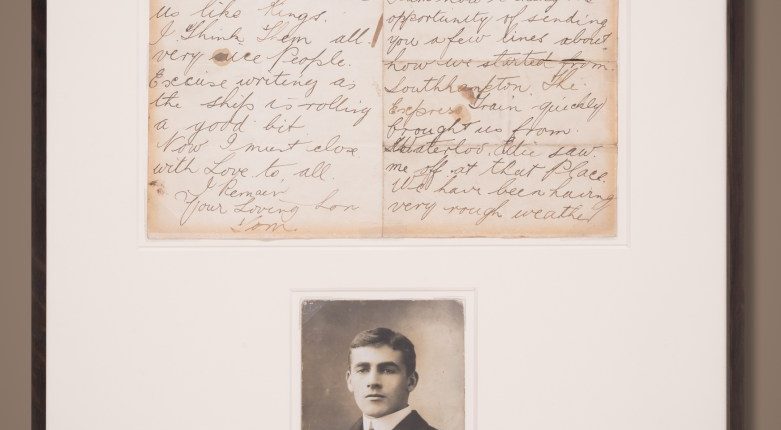 us like Kings.
I Think Them all
very nice People.
Excuse writing as
the ship is rolling
a good bit
Now I must close
with Love to all.
I Remain
Your Loving Son
Tom.
opportunity of sending
you a few lines about
how we started from
Southhampton. The
Express Train quickly
brought us from
Waterloo. saw
me off at that Place.
We have been having
very rough weather